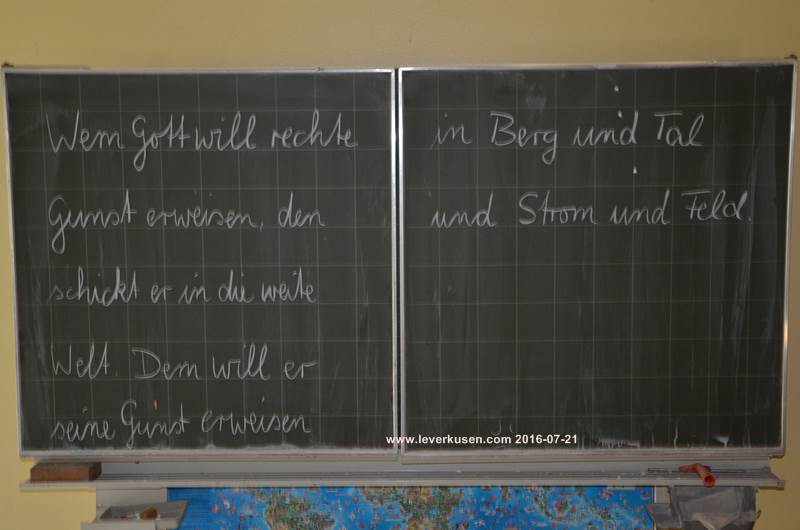 Wem Gott will rechte
Gunst erweisen, den
schickt er in die weite
Welt. Dem will er
seine Gunst erweisen
in Berg und Tal
und Strom und Feld.
www.leverkusen.com 2016-07-21